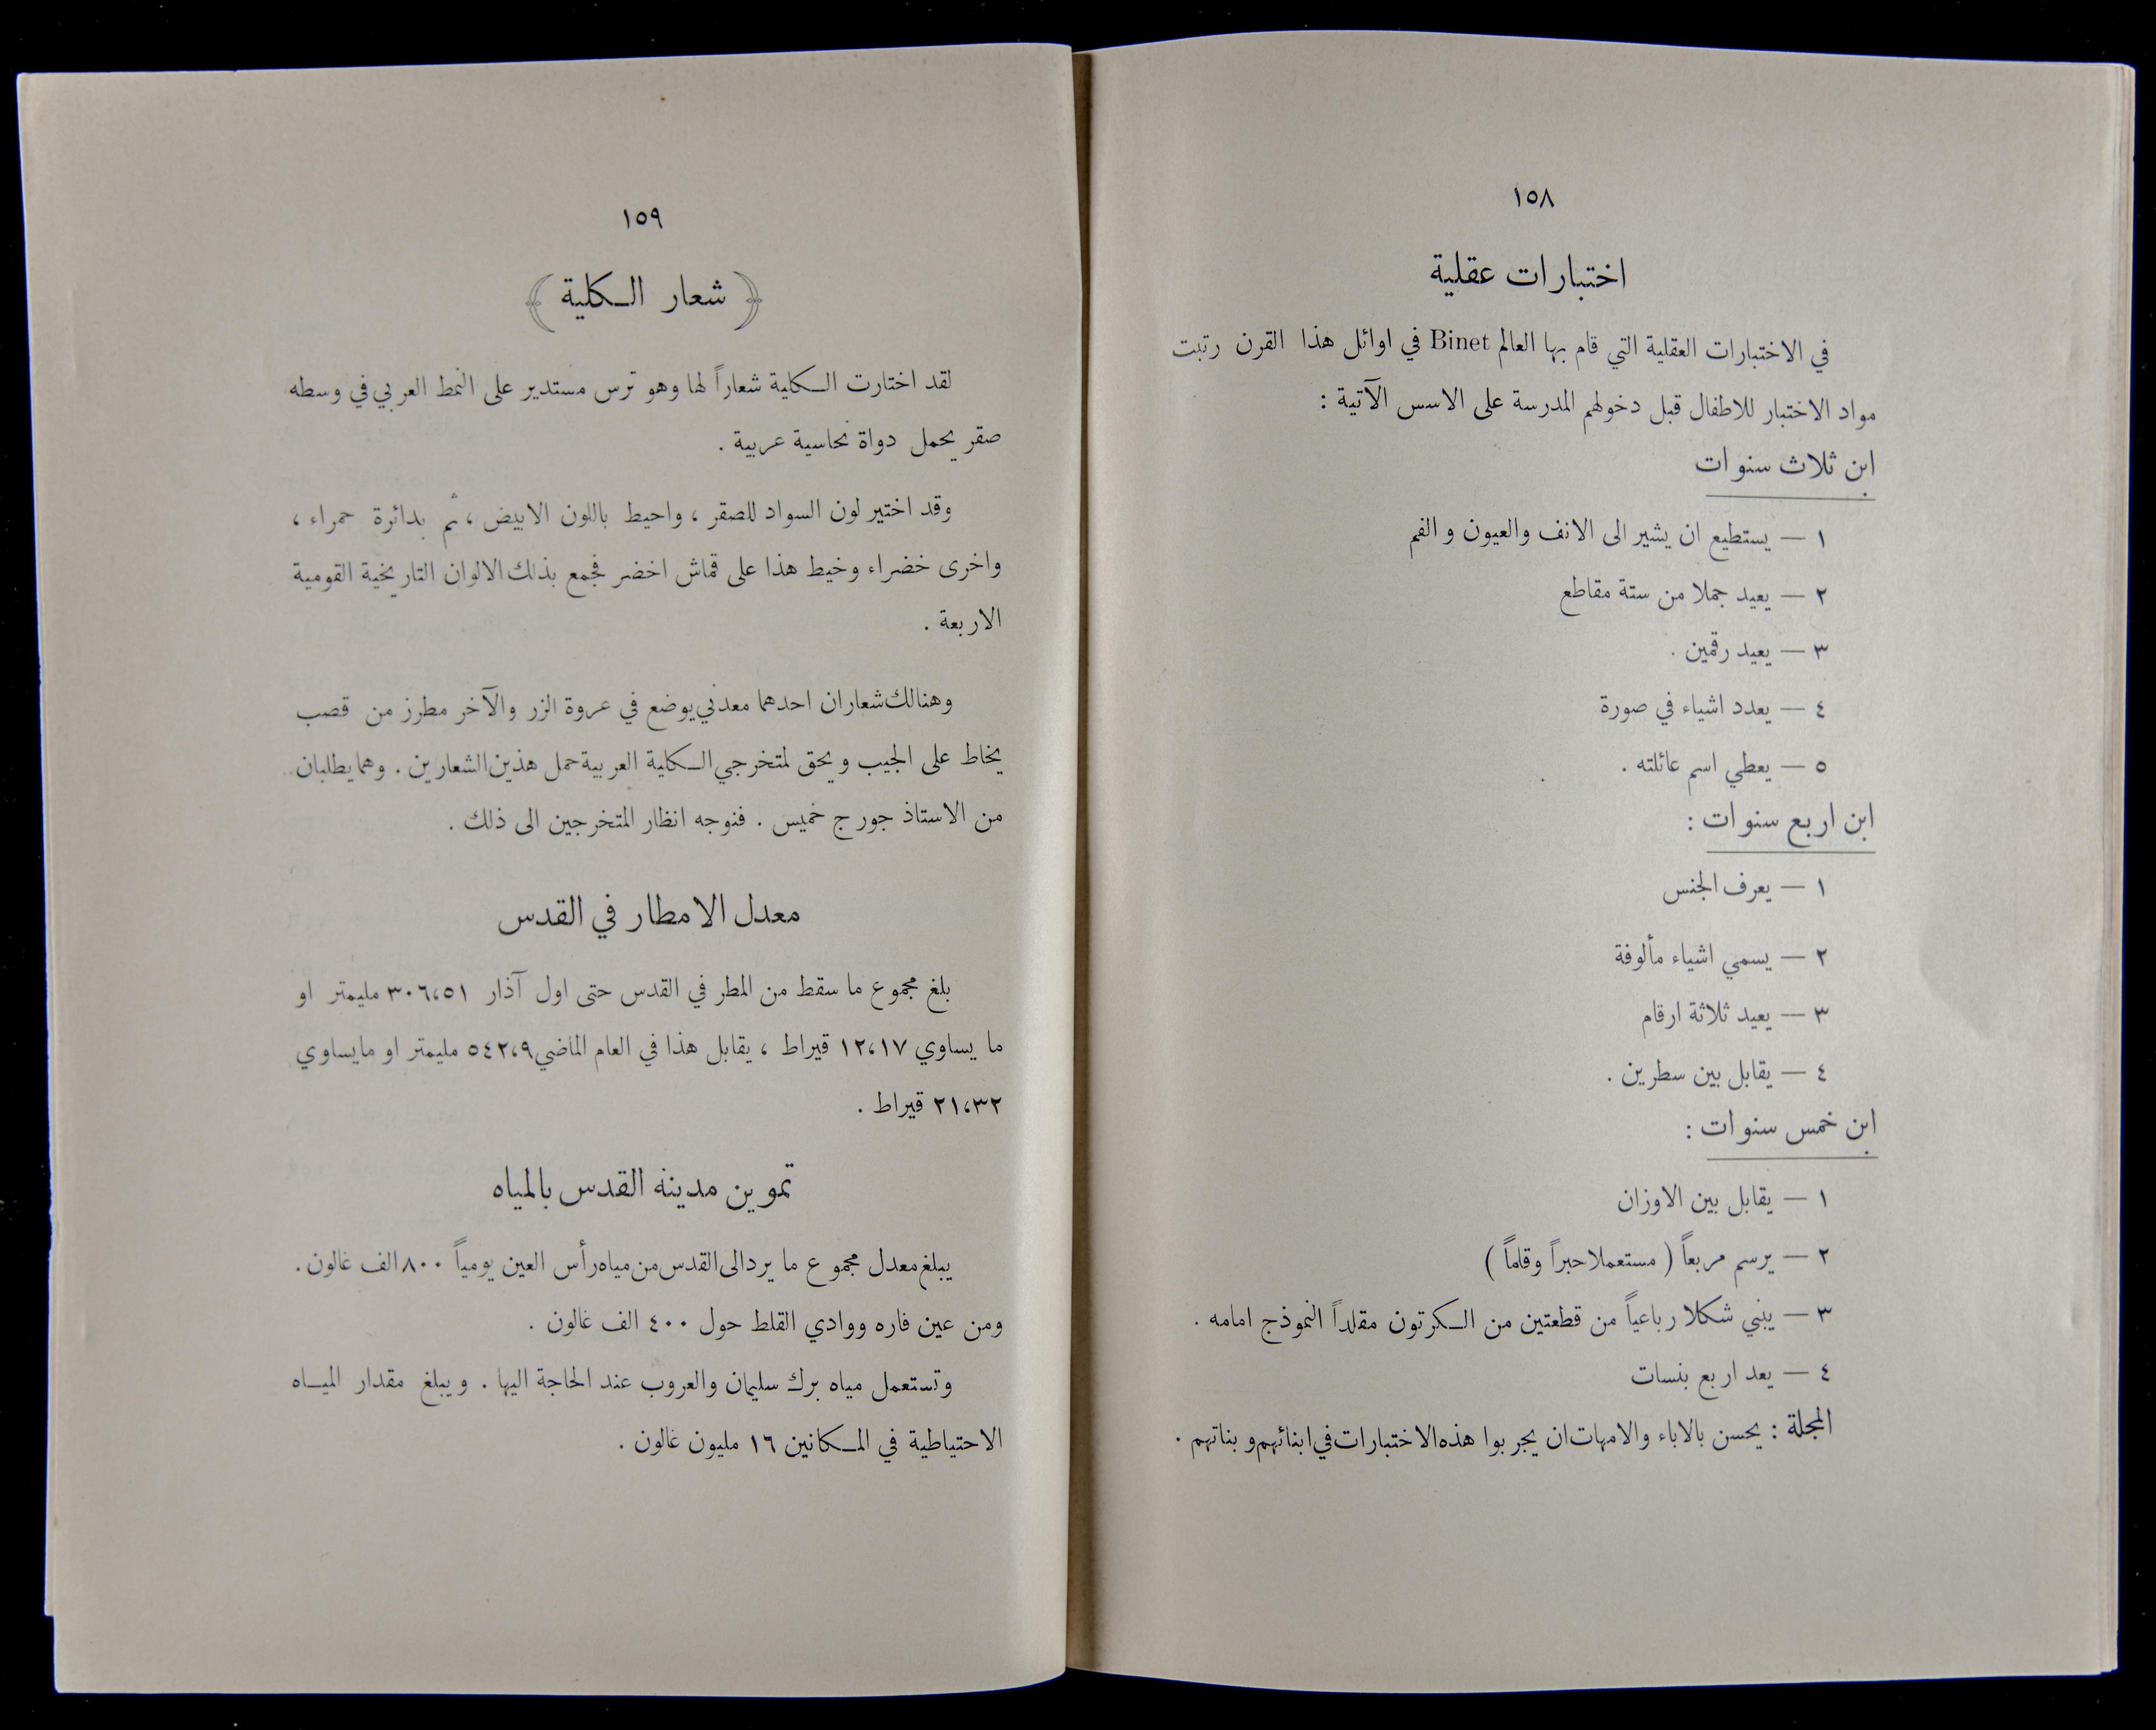 ١٥٨
اختبارات عقلية
في الاختبارات العقلية التي قام بها العالم Binet في اوائل هذا القرن رتبت
مواد الاختبار للاطفال قبل دخولهم المدرسة على الاسس الآتية :
ابن ثلاث سنوات
١ — يستطيع ان يشير الى الانف والعيون والفم
٢ — يعيد جملا من ستة مقاطع
٣ — يعيد رقمين .
٤ — يعدد اشياء في صورة
٥ — يعطي اسم عائلته .
ابن اربع سنوات :
١ — يعرف الجنس
٢ — يسمي اشياء مألوفة
٣ — يعيد ثلاثة ارقام
٤ — يقابل بين سطرين .
ابن خمس سنوات :
١ — يقابل بين الاوزان
٢ — يرسم مربعاً ( مستعملا حبراً وقلماً )
٣ — يبني شكلا رباعياً من قطعتين من الكرتون مقلداً النموذج امامه .
٤ — يعد اربع بنسات
المجلة : يحسن بالاباء والامهات ان يجربوا هذه الاختبارات في ابنائهم وبناتهم .
١٥٩
﴿ شعار الكلية ﴾
لقد اختارت الكلية شعاراً لها وهو ترس مستدير على النمط العربي في وسطه
صقر يحمل دواة نحاسية عربية .
وقد اختير لون السواد للصقر ، واحيط باللون الابيض ، ثم بدائرة حمراء ،
واخرى خضراء وخيط هذا على قماش اخضر فجمع بذلك الالوان التاريخية القومية
الاربعة .
وهنالك شعاران احدهما معدني يوضع في عروة الزر والآخر مطرز من قصب
يخاط على الجيب ويحق لمتخرجي الكلية العربية حمل هذين الشعارين . وهما يطلبان
من الاستاذ جورج خميس . فنوجه انظار المتخرجين الى ذلك .
معدل الامطار في القدس
بلغ مجموع ما سقط من المطر في القدس حتى اول آذار ٣٠٦،٥١ مليمتر او
ما يساوي ١٢،١٧ قيراط ، يقابل هذا في العام الماضي ٥٤٢،٩ مليمتر او ما يساوي
٢١،٣٢ قيراط .
تموين مدينه القدس بالمياه
يبلغ معدل مجموع ما يرد الى القدس من مياه رأس العين يومياً ٨٠٠ الف غالون .
ومن عين فاره ووادي القلط حول ٤٠٠ الف غالون .
وتستعمل مياه برك سليمان والعروب عند الحاجة اليها . ويبلغ مقدار الميـاه
الاحتياطية في المكانين ١٦ مليون غالون .